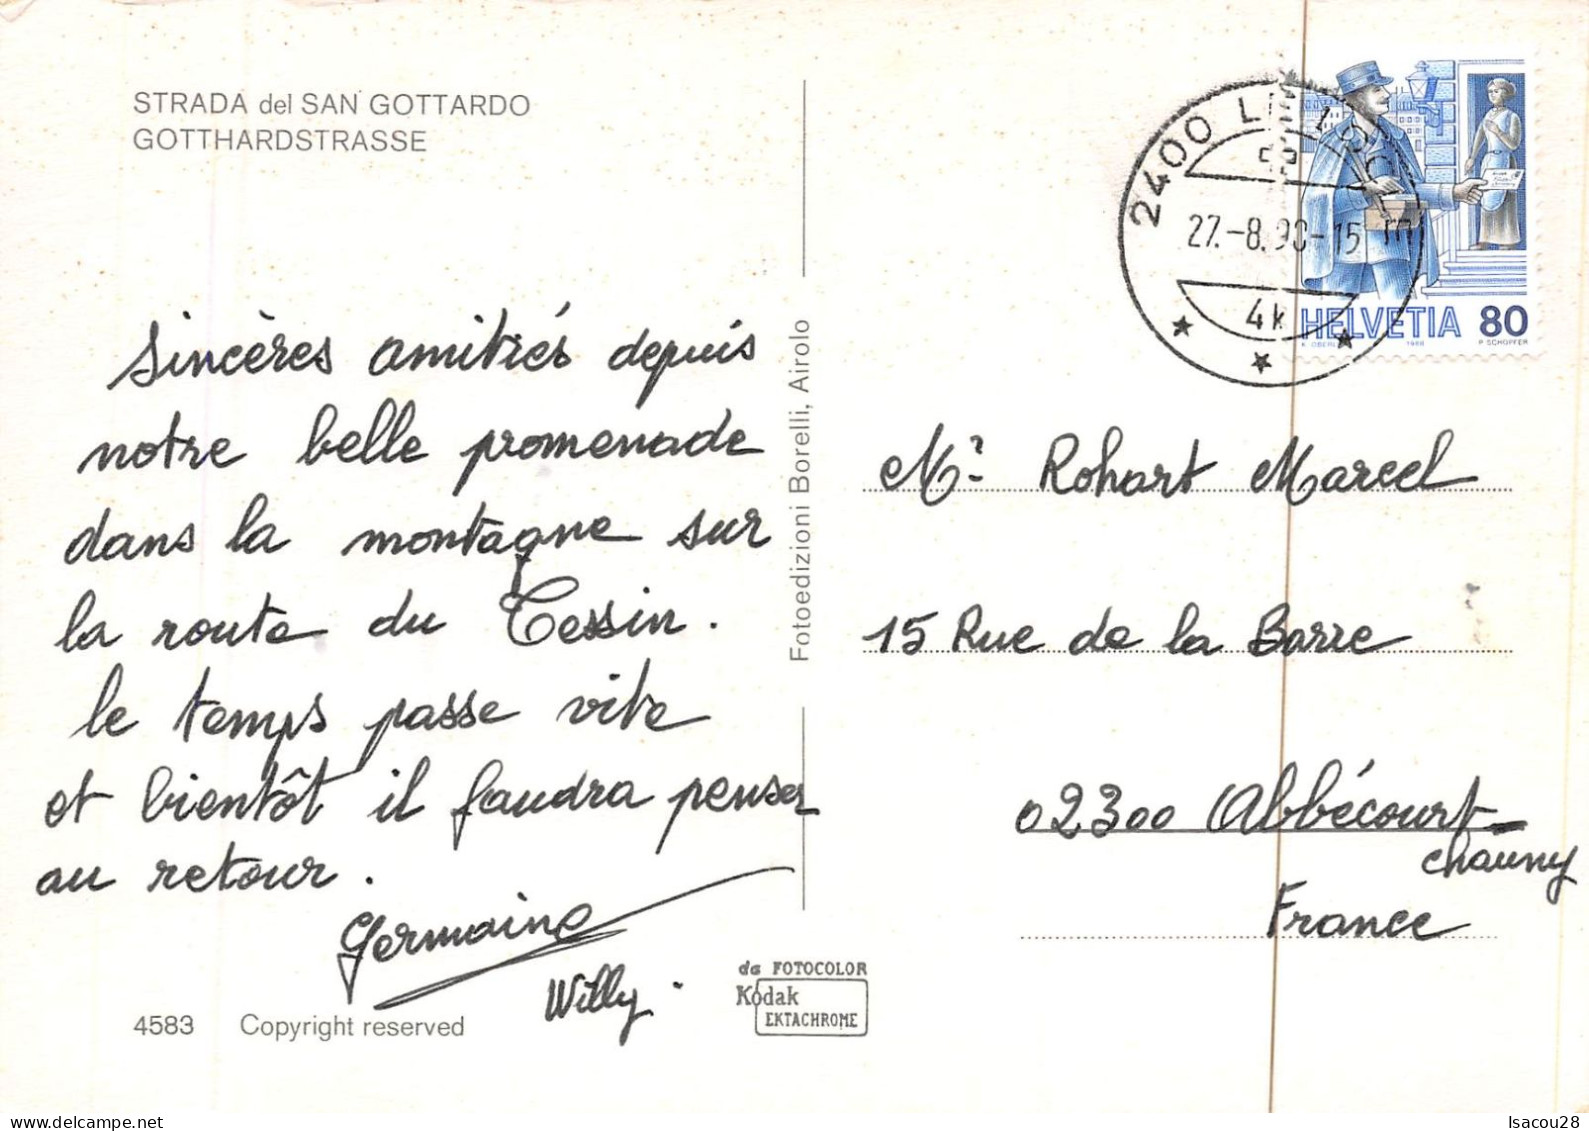 STRADA del SAN GOTTARDO
GOTTHARDSTRASSE
sincères amitiés depuis
notre belle promenade
dans la montagne sur
la route du Tessin.
le temps passe vite
et bientôt il faudra penser
au retour.
Germaine
Willy.
4583 Copyright reserved
Fotoedizioni Borelli, Airolo
da FOTOCOLOR
Kodak
EKTACHROME
2400 LE LOCLE
27.-8.90-15
4k
HELVETIA 80
1988 P. SCHOPFER
Mr Rohart Marcel
15 Rue de la Barre
02300 Abbécourt-
chauny
France
Isacou28